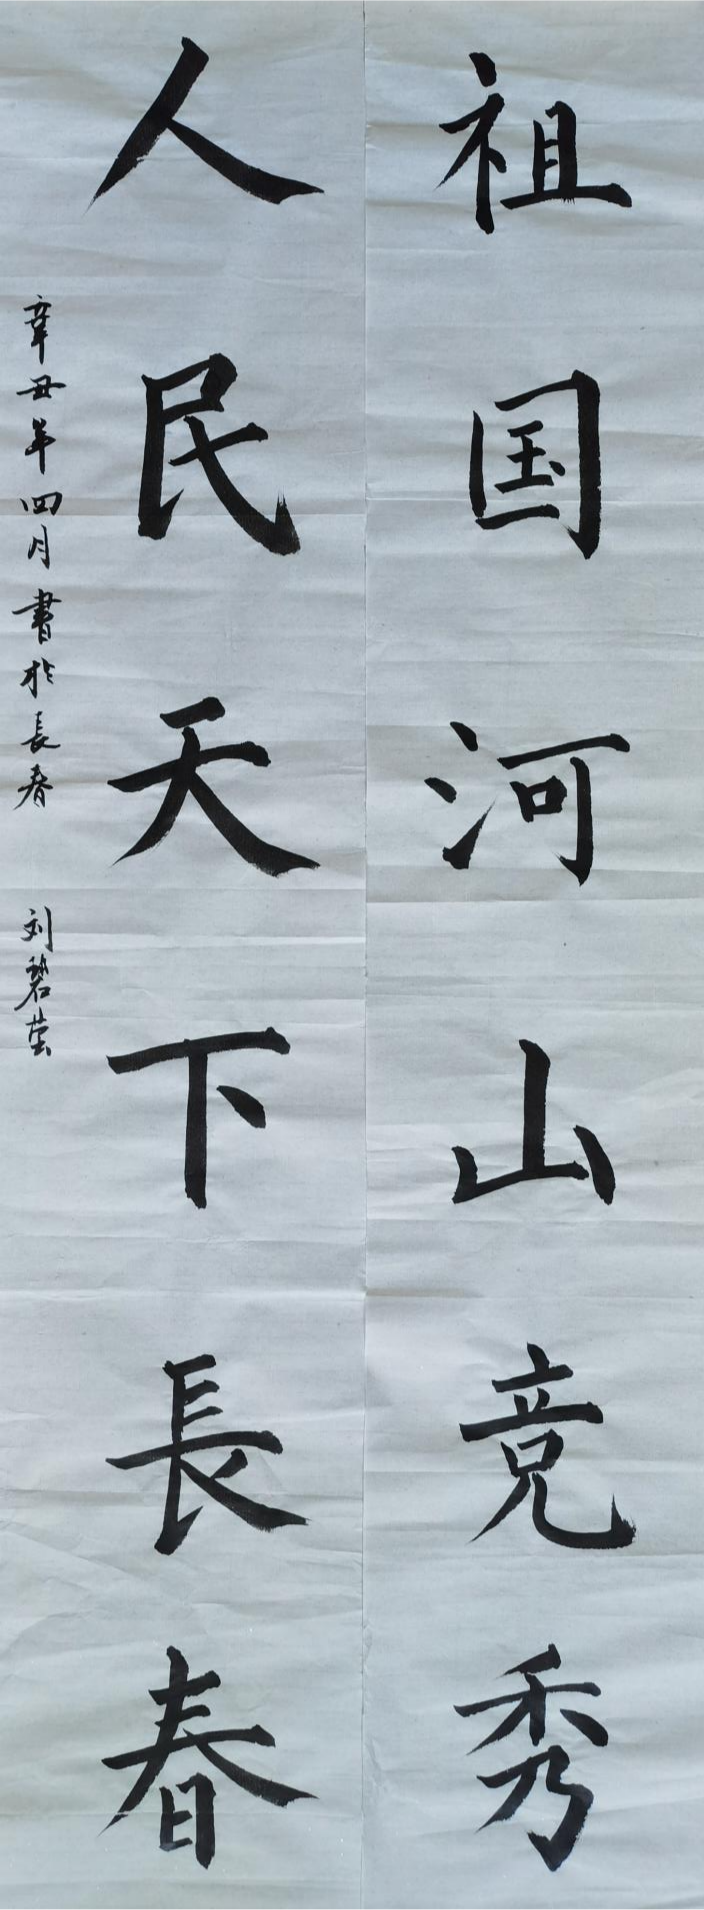 祖国河山竞秀
人民天下長春
辛丑年四月書於長春
刘碧莹